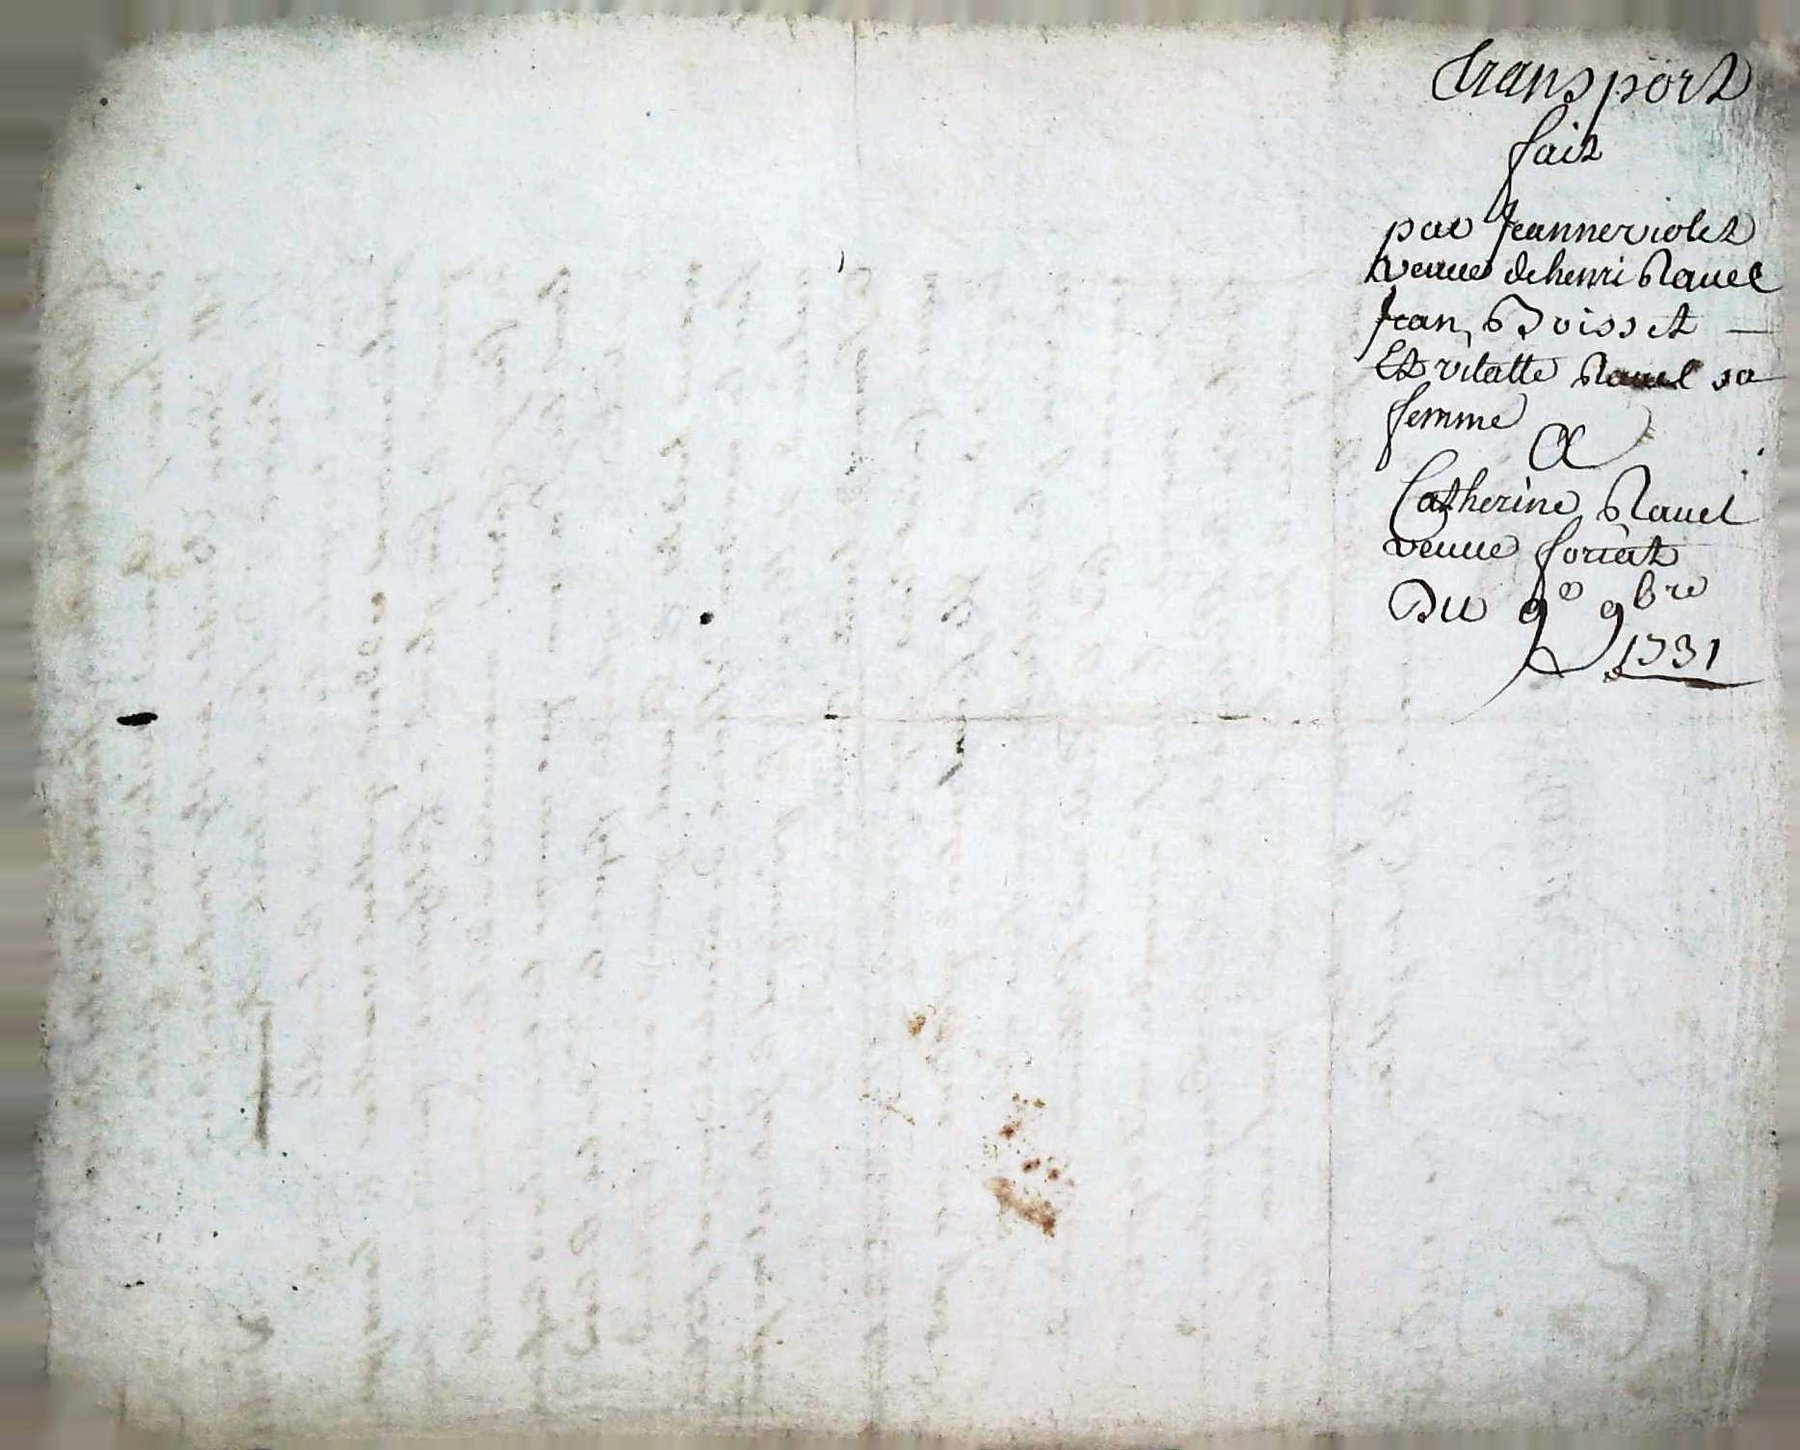 transport
fait
par Jeanne violet
veuue de henri Rauel
Jean Boisset
Et vitalle Rauel sa
femme
A
Catherine Rauel
veuue foriat
Du 9e 9bre
1731